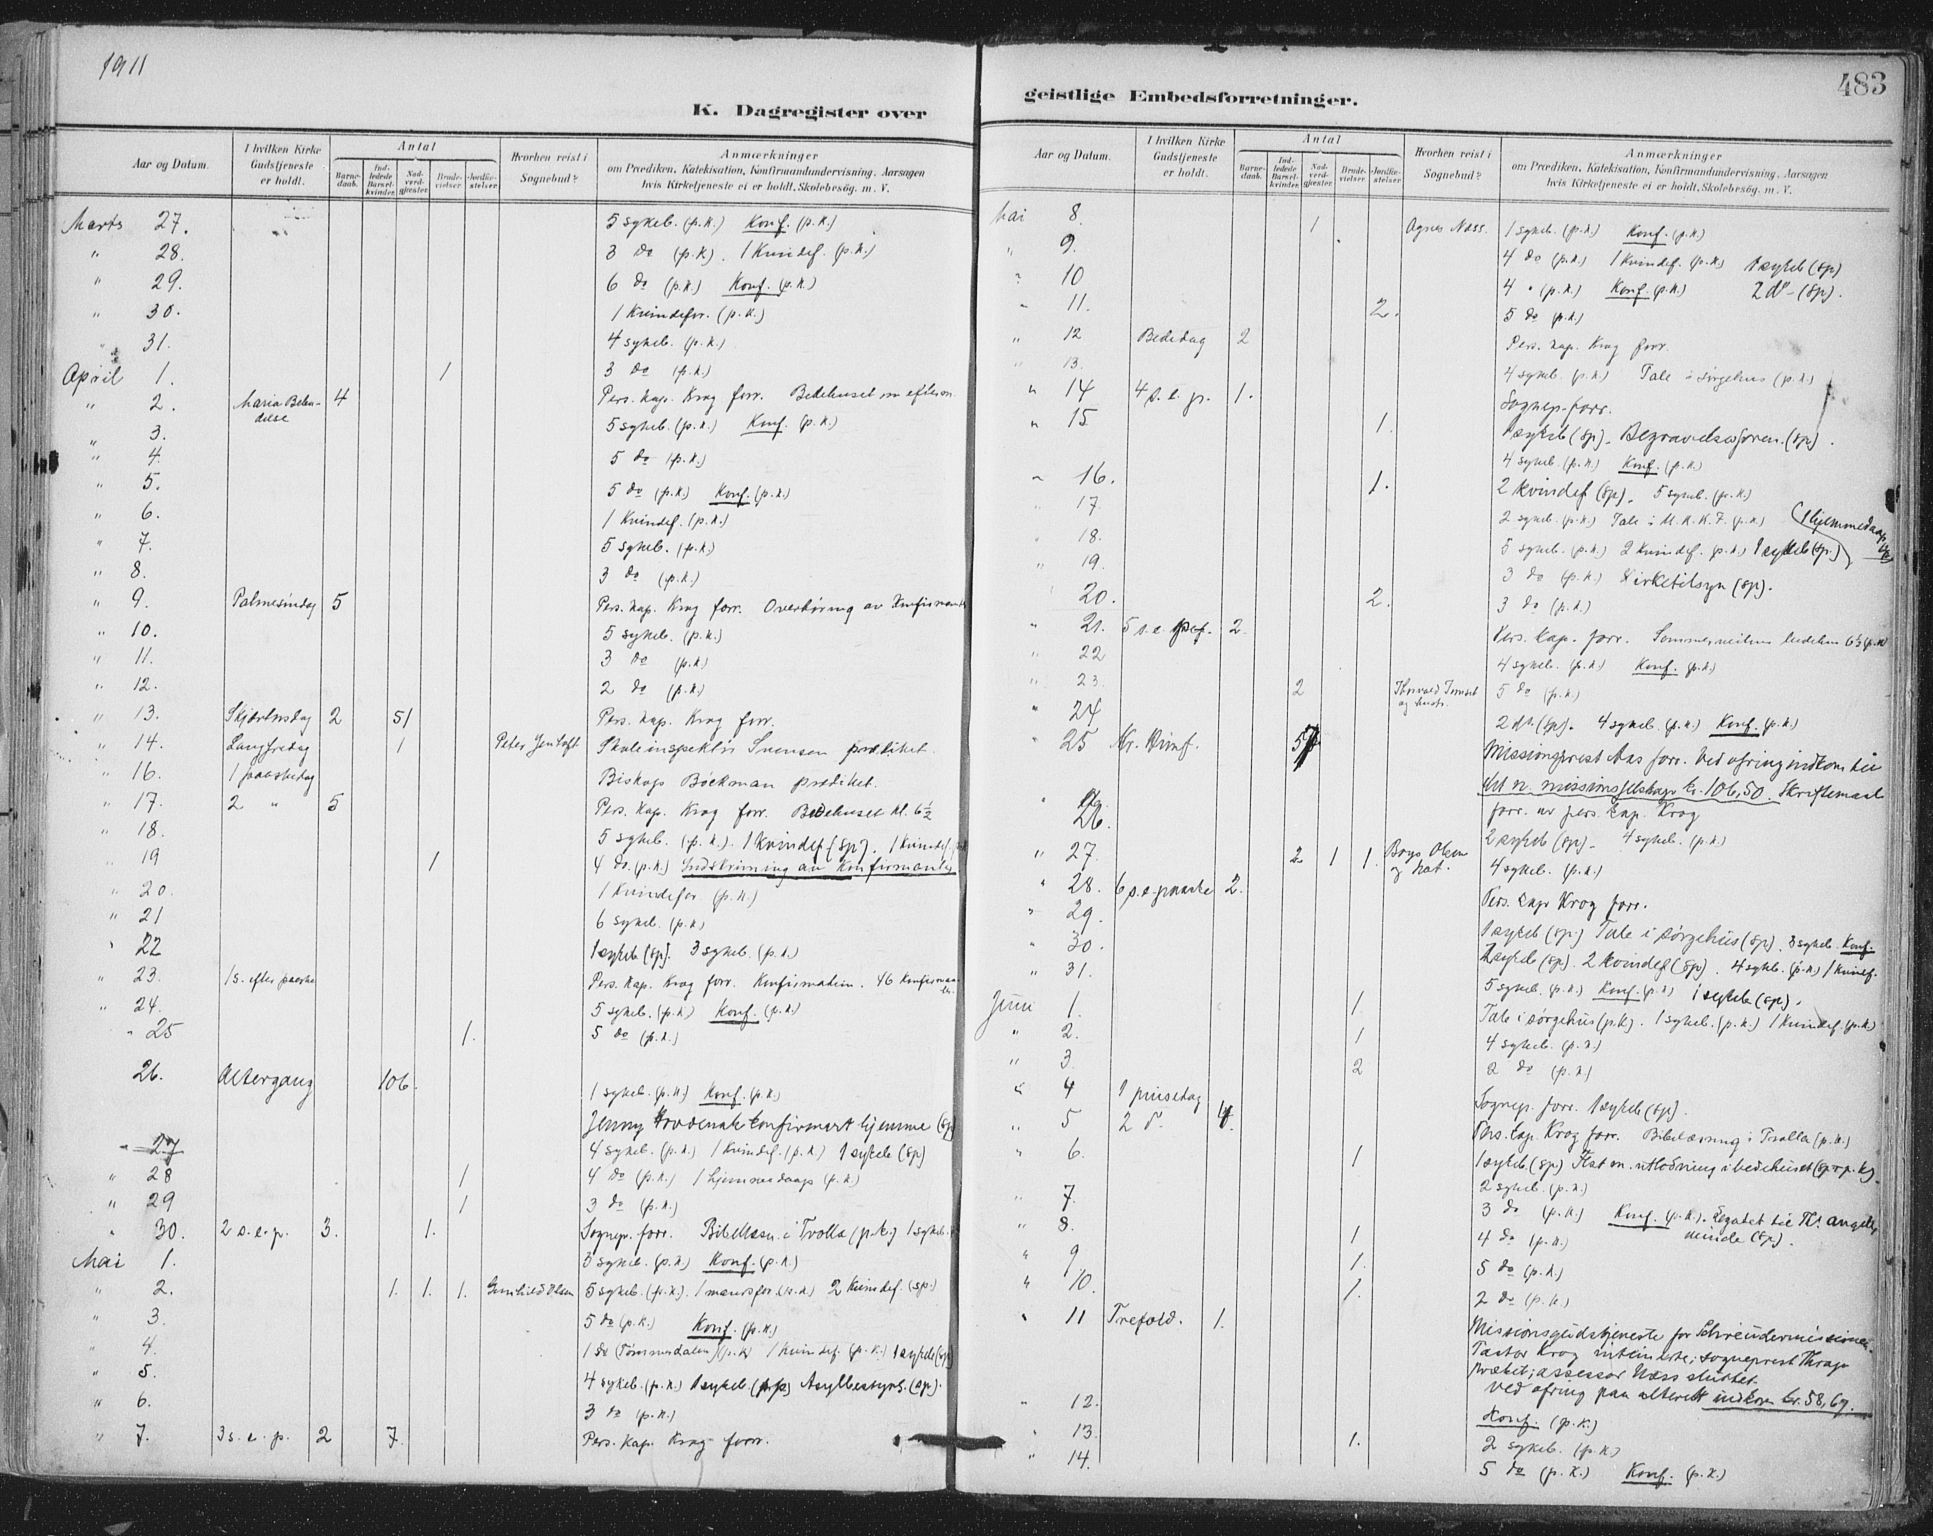 1911
K. Dagregister over
Aar og Datum. I hvilken Kirke Gudstjeneste er holdt. Antal Barne-daab. Ind-ledede Barsel-kvinder. Nad-verd-gjæster. Brude-vielser. Jordfæ-stelser. Hvorhen reist i Sognebud? Anmærkninger om Prædiken, Katekisation, Konfirmandundervisning, Aarsagen hvis Kirketjeneste ei er holdt, Skolebesøg. m. V.
Marts 27. 5 sykeb. (p.k.) Konf. (p.k.)
" 28. 3 do (p.k). 1 Kvindef. (p.k.)
" 29. 6 do (p.k.) Konf. (p.k.)
" 30. 1 Kvindefor. (p.k.)
" 31. 4 sykeb. (p.k.)
April 1. 1 3 do (p.k.)
" 2. Maria Bebudelse 4 Pers. kap. Krog forr. Bedehuset om efterm
" 3. 5 sykeb. (p.k.) Konf. (p.k.)
" 4. 5 do (p.k.)
" 5. 5 do (p.k.) Konf. (p.k.)
" 6. 1 Kvindef. (p.k.)
" 7. 5 sykeb. (p.k.)
" 8. 3 do (p.k.)
" 9. Palmesøndag 5 Pers. kap. Krog forr. Overhøring av Konfirmander
" 10. 5 sykeb. (p.k.)
" 11. 3 do (p.k)
" 12. 2 do (p.k.)
" 13. Skjærtorsdag 2 51 Pers. kap. Krog forr.
" 14. Langfredag 1 Peter Jentoft Skoleinspektør Svensen prædiket.
" 16. 1 paaskedag Biskop Bøckman prædiket.
" 17. 2 " 5 Pers. Kap. Krog forr. Bedehuset kl. 6½
" 18. 5 sykeb. (p.k.). 1 kvindef (sp). 1 kvindef.
" 19 1 4 do. (p.k.) Indskrivning av Konfirmanter
" 20. 1 Kvindefor (p.k.)
" 21 6 sykeb. (p.k)
" 22 1 sykeb (sp). 3 sykeb. (p.k.)
" 23. 1 s. efter paaske Pers. Kap. Krog forr. Konfirmation. 46 Konfirmanter.
" 24. 5 sykeb. (p.k.) Konf. (p.k.)
" 25 1. 5 do (p.k.)
26. Altergang 106. 1 sykeb. (p.k.) Konf. (p.k.)
Jenny konfirmert hjemme (sp)
" 27 4 sykeb. (p.k.) 1 Kvindef. (p.k.) 1 sykeb (sp)
" 28 1 4 do (p.k.) 1 hjemmedaap (p.k.)
" 29 1 3 do (p.k.)
" 30. 2 s. e. p. 3. 1. Sognepr. forr. Bibellæsn. i Trolla (p.k.) 1 sykeb.
Mai 1. 3 sykeb. (p.k.) Konf. (p.k.)
" 2. 1. 1. 1. Gunhild Olsen 5 sykeb. (p.k.). 1 mandsfor. (p.k.) 2 Kvindef. (sp.)
" 3. 5 do (p.k.) Konf. (p.k.)
" 4. 1 do (Tømmerdalen) (p.k) 1 kvindef. (p.k.) 1 sykeb (sp)
" 5. 4 sykeb. (p.k.) 1 sykeb (sp) Asylbestyr. (sp).
" 6. 3 do (p.k.)
" 7. 3 s. e. p. 2 7. Pers. kap. Krog forr.
geistlige Embedsforretninger.
483
Aar og Datum. I hvilken Kirke Gudstjeneste er holdt. Antal Barne-daab. Ind-ledede Barsel-kvinder. Nad-verd-gjæster. Brude-vielser. Jordfæ-stelser. Hvorhen reist i Sognebud? Anmærkninger om Prædiken, Katekisation, Konfirmandundervisning, Aarsagen hvis Kirketjeneste ei er holdt, Skolebesøg. m. V.
Mai 8. 1 Agnes Næss. 1 sykeb. (p.k.) Konf. (p.k)
" 9. 4 do (p.k.) 1 Kvindef. (p.k.) 1 sykeb (sp)
" 10 4 " (p.k.) Konf. (p.k.) 2 do - (sp).
" 11. 2. 5 do (p.k.)
" 12 Bededag 2 Pers. kap. Krog forr.
" 13. 4 sykeb. (p.k.) Tale i sørgehus (p.k.)
" 14 4 s. e. p. 1. Sognep. forr.
" 15. 1. 1 sykeb (sp). Begravelsesforen. (sp).
4 sykeb. (p.k.) Konf. (p.k.)
" 16. 1. 2 kvindef (sp). 5 sykeb. (p.k.)
" 17. 2 sykeb. (p.k.) Tale i U.K.K.F. (p.k.) (1 hjemmedaap sp)
" 18. 5 sykeb. (p.k.) 2 Kvindef. (p.k.) 1 sykeb (sp.)
" 19. 3 do (p.k.) Kirketilsyn (sp).
" 20. 2. 3 do (p.k.)
" 21. 5 s. e. p. 2. Pers. kap. forr. 6½ (p.k)
" 22 4 sykeb. (p.k.) Konf. (p.k.)
" 23. 2 Thorvald og hustr. 5 do (p.k.)
" 24 2 do. (sp). 4 sykeb. (p.k.) Konf. (p.k.)
" 25 Kr. Himf. 57 Missionsprest Aas forr. Ved ofring indkom til
det n. missionsselskap kr. 106,50. Skriftemaal
forr. av pers. kap. Krog
" 26. 2 sykeb (sp). 4 sykeb. (p.k.)
" 27. 2 1 1. Olsen og 4 sykeb. (p.k.)
" 28. 6 s. e. paaske 2. Pers. kap Krog forr.
" 29. 1 sykeb (sp.) Tale i sørgehus (sp). 3 sykeb. Konf.
" 30. 2 sykeb (sp). 2 kvindef (sp). 4 sykeb. (p.k.) 1 kvindef.
" 31. 5 sykeb. (p.k.) Konf. (p.k.) 1 sykeb (sp).
Juni 1. 1. Tale i sørgehus (p.k). 1 sykeb. (p.k.) 1 Kvindef. (p.k)
" 2. 1 4 sykeb. (p.k.)
" 3. 2 2 do (p.k.)
" 4 1 pinsedag Sognepr. forr. 1 sykeb (sp).
" 5 2 d. 4. Pers. kap. Krog forr. Bibellæsning i Trolla (p.k.)
" 6. 1 1 sykeb (sp) utlodning i bedehuset (sp og p.k.).
" 7. 2 sykeb. (p.k.)
" 8. 1 3 do (p.k.) Konf. (p.k.). Legatet til Th. Angells
minde (sp).
" 9. 1. 4 do (p.k.)
" 10. 1. 5 do (p.k.)
2 do (p.k.)
" 11 Trefold. 1. Missionsgudstjeneste for Schreudermissionen.
Pastor Krog intonerte; sogneprest Thrap
præket; assessor Næss sluttet.
Ved ofring paa alteret indkom kr. 58,67.
" 12. Konf. (p.k.)
" 13. 1. 2 sykeb. (p.k.)
" 14. 5 do (p.k.) Konf. (p.k.)